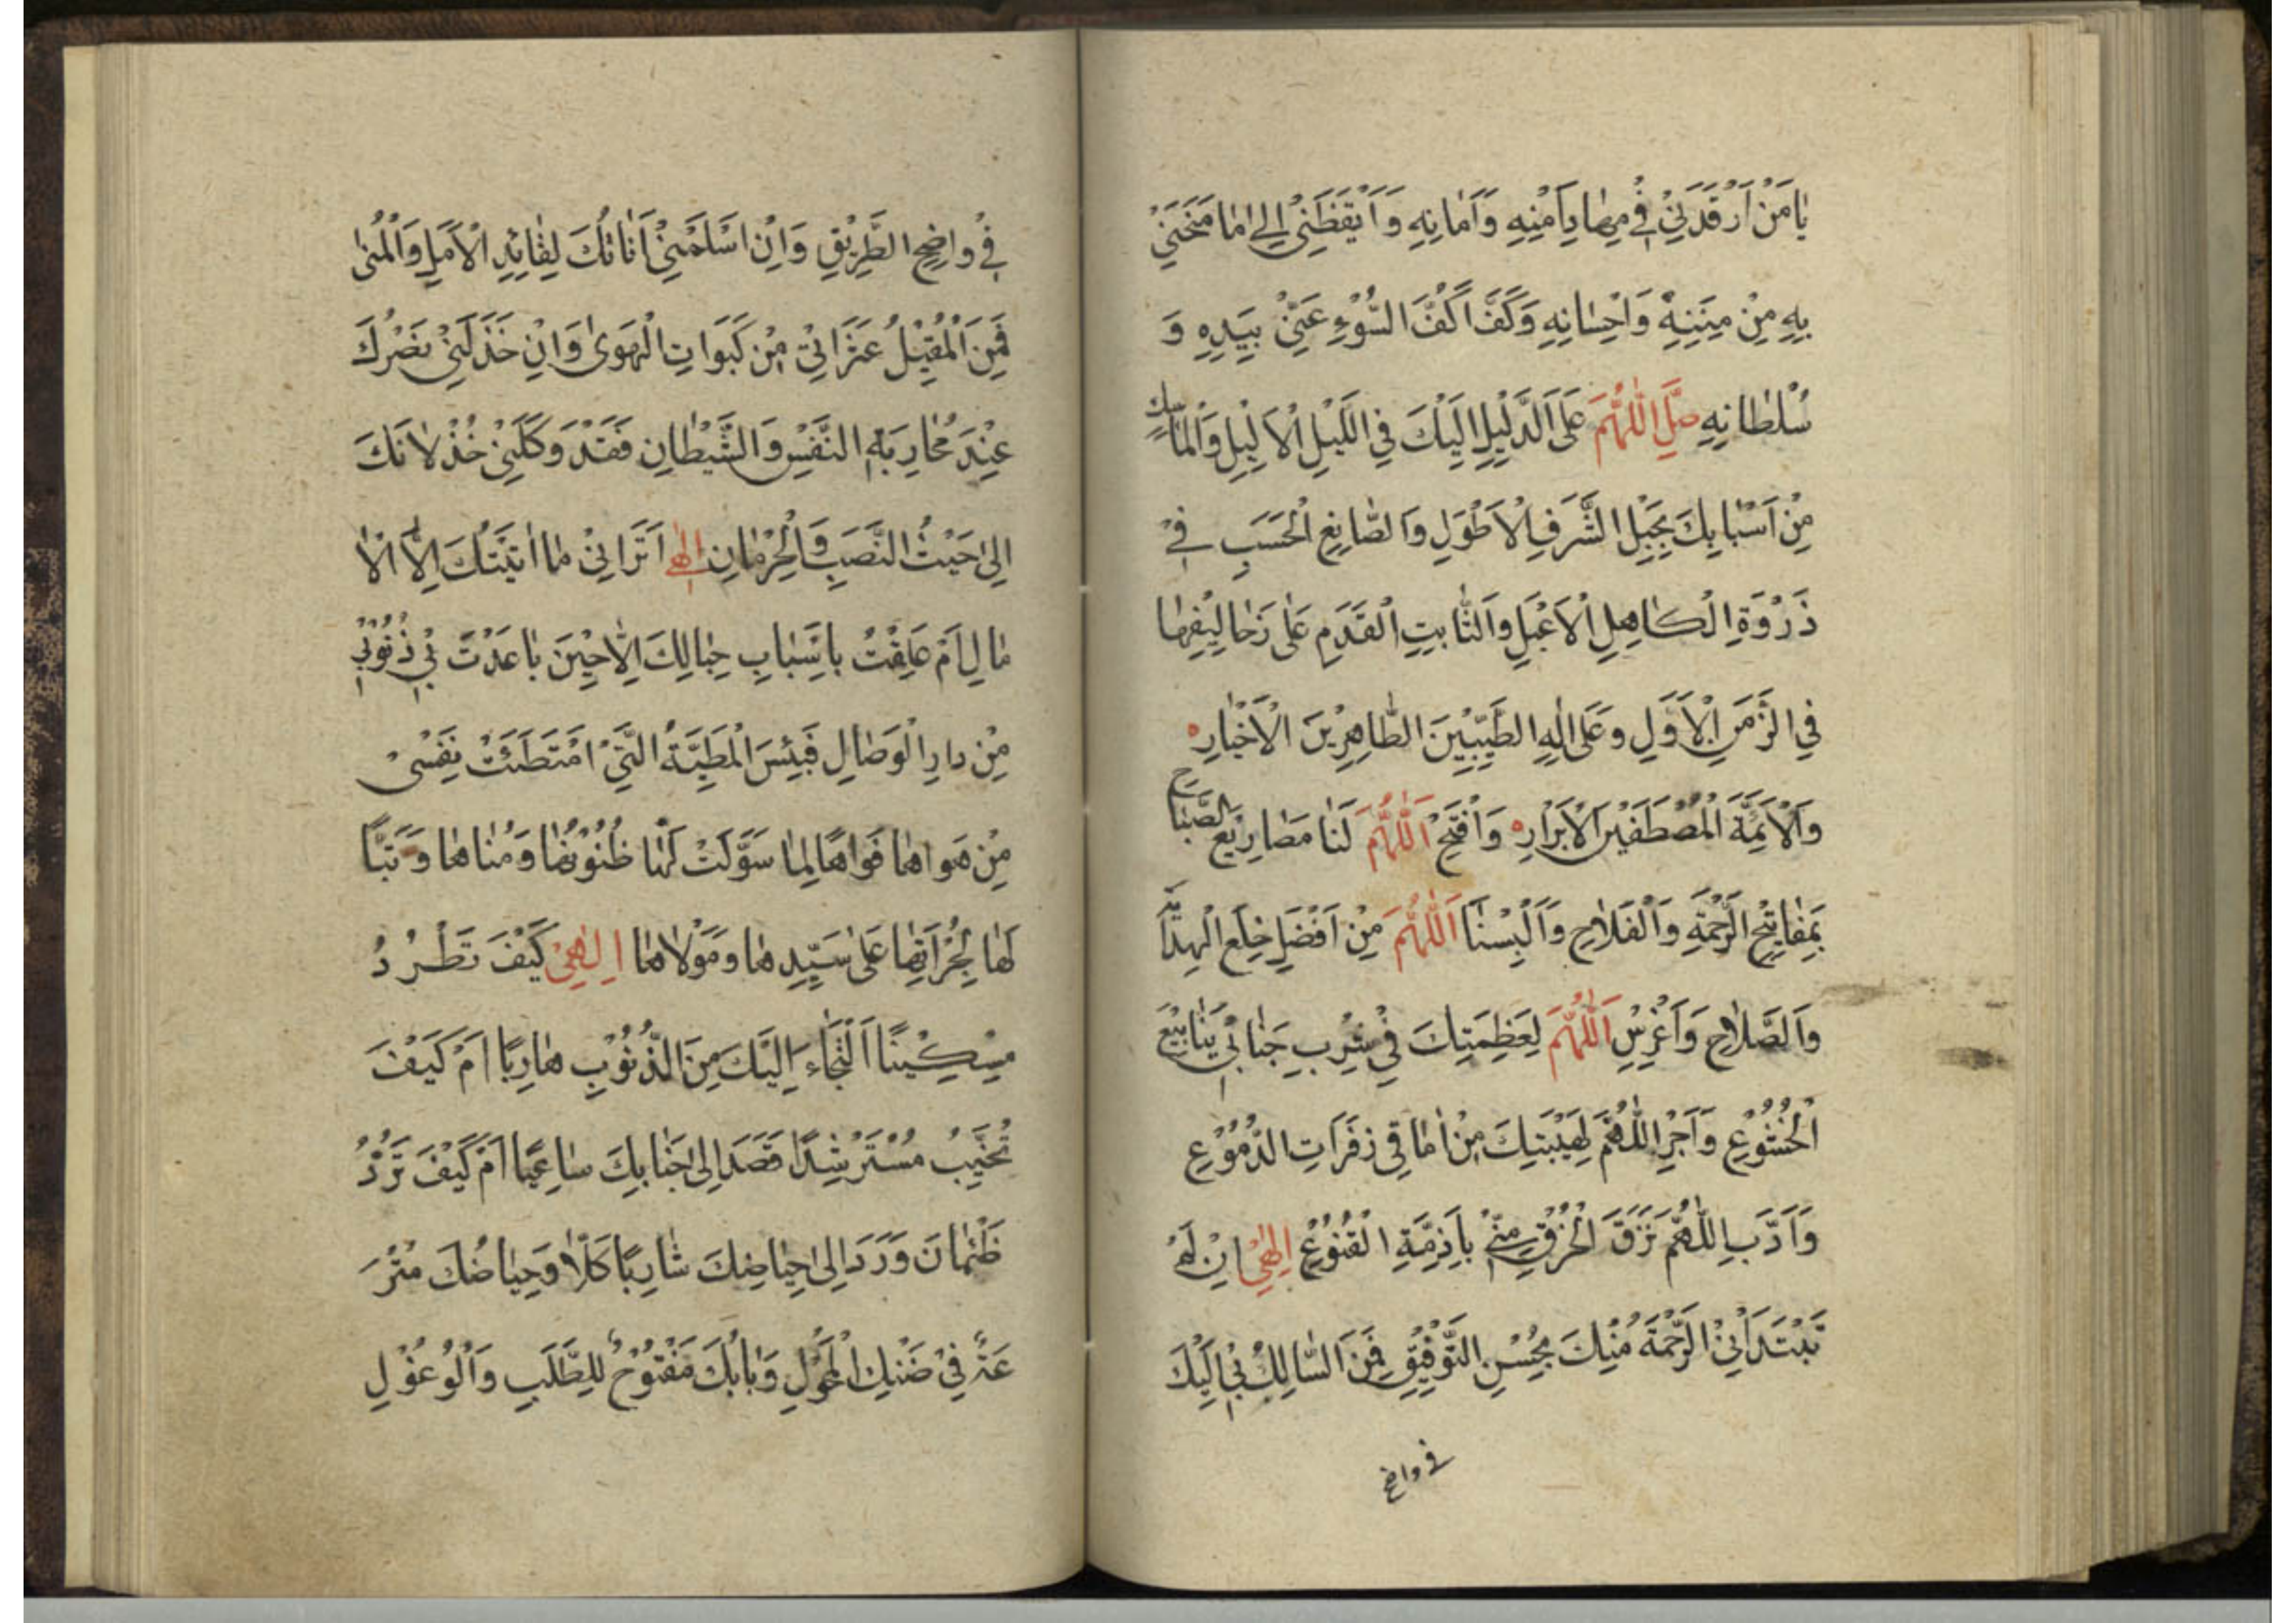 يٰا مَنْ اَرْقَدَنِيْ فِيْ مِهٰادِ اَمْنِهِ وَاَمٰانِهِ وَاَيْقَظَنِيْ اِلىٰ مٰا مَنَحَنِيْ
بِهِ مِنْ مِنَنِهِ وَاِحْسٰانِهِ وَكَفَّ اَكُفَّ السُّوْءِ عَنِّيْ بِيَدِهِ وَ
سُلْطٰانِهِ صَلِّ اللّٰهُمَّ عَلَى الدَّلِيْلِ اِلَيْكَ فِي اللَّيْلِ الْاَلْيَلِ وَالْمٰاسِكِ
مِنْ اَسْبٰابِكَ بِحَبْلِ الشَّرَفِ الْاَطْوَلِ وَالصّٰانِعِ الْحَسَبِ فِيْ
ذَرْوَةِ الْكٰاهِلِ الْاَعْبَلِ وَالثّٰابِتِ الْقَدَمِ عَلىٰ زَحٰالِيْفِهٰا
فِي الزَّمَنِ الْاَوَّلِ وَعَلىٰ اٰلِهِ الطَّيِّبِيْنَ الطّٰاهِرِيْنَ الْاَخْيٰارِ
وَالْاَئِمَّةِ الْمُصْطَفَيْنَ الْاَبْرٰارِ وَافْتَحْ اَللّٰهُمَّ لَنٰا مَصٰارِيْعَ الصَّبٰاحِ
بِمَفٰاتِيْحِ الرَّحْمَةِ وَالْفَلاٰحِ وَاَلْبِسْنٰا اَللّٰهُمَّ مِنْ اَفْضَلِ خِلَعِ الْهِدٰايَةِ
وَالصَّلاٰحِ وَاَغْرِسِ اَللّٰهُمَّ لِعَظَمَتِكَ فِيْ شِرْبِ جَنٰانِيْ يَنٰابِيْعَ
الْخُشُوْعِ وَاَجْرِ اللّٰهُمَّ لِهَيْبَتِكَ مِنْ اٰمٰاقِيْ زَفَرَاتِ الدُّمُوْعِ
وَاَدِّبِ اللّٰهُمَّ نَزَقَ الْخُرْقِ مِنِّيْ بِاَزِمَّةِ الْقُنُوْعِ اِلٰهِيْ اِنْ لَمْ
تَبْتَدِأْنِيْ الرَّحْمَةُ مِنْكَ بِحُسْنِ التَّوْفِيْقِ فَمَنِ السّٰالِكُ بِيْ اِلَيْكَ
في واضح
فِيْ وٰاضِحِ الطَّرِيْقِ وَاِنْ اَسْلَمَتْنِيْ اَنٰاتُكَ لِقٰائِدِ الْاَمَلِ وَالْمُنىٰ
فَمَنِ الْمُقِيْلُ عَثَرَاتِيْ مِنْ كَبَوَاتِ الْهَوىٰ وَاِنْ خَذَلَنِيْ نَصْرُكَ
عِنْدَ مُحٰارَبَةِ النَّفْسِ وَالشَّيْطٰانِ فَقَدْ وَكَلَنِيْ خُذْلاٰنُكَ
اِلىٰ حَيْثُ النَّصَبِ وَالْحِرْمٰانِ اِلٰهِي اَتَرَانِيْ مٰا اَتَيْتُكَ اِلَّا مِنْ حَيْثُ الْاٰ
مٰالِ اَمْ عَلِقْتُ بِاَسْبٰابِ حِبٰالِكَ اِلّٰا حِيْنَ بٰاعَدَتْ بِيْ ذُنُوْبِيْ
مِنْ دارِ الْوِصٰالِ فَبِئْسَ الْمَطِيَّةُ الَّتِيْ امْتَطَئَتْ نَفْسِيْ
مِنْ هَوٰاهٰا فَوٰاهًا لِمٰا سَوَّلَتْ لَهٰا ظُنُوْنُهٰا وَمُنٰاهٰا وَتَبًّا
لَهٰا لِجُرْاَتِهٰا عَلىٰ سَيِّدِهٰا وَمَوْلاٰهٰا اِلٰهِيْ كَيْفَ تَطْرُدُ
مِسْكِيْنًا اَلْتَجٰاءَ اِلَيْكَ مِنَ الذُّنُوْبِ هٰارِبًا اَمْ كَيْفَ
تُخَيِّبُ مُسْتَرْشِدًا قَصَدَ اِلىٰ جَنٰابِكَ سٰاعِيًا اَمْ كَيْفَ تَرُدُّ
ظَمْاٰنَ وَرَدَ اِلىٰ حِيٰاضِكَ شٰارِبًا كَلّٰا وَحِيٰاضُكَ مُتْرَ
عَةٌ فِيْ ضَنْكِ الْمُحُوْلِ وَبٰابُكَ مَفْتُوْحٌ لِلطَّلَبِ وَالْوُغُوْلِ